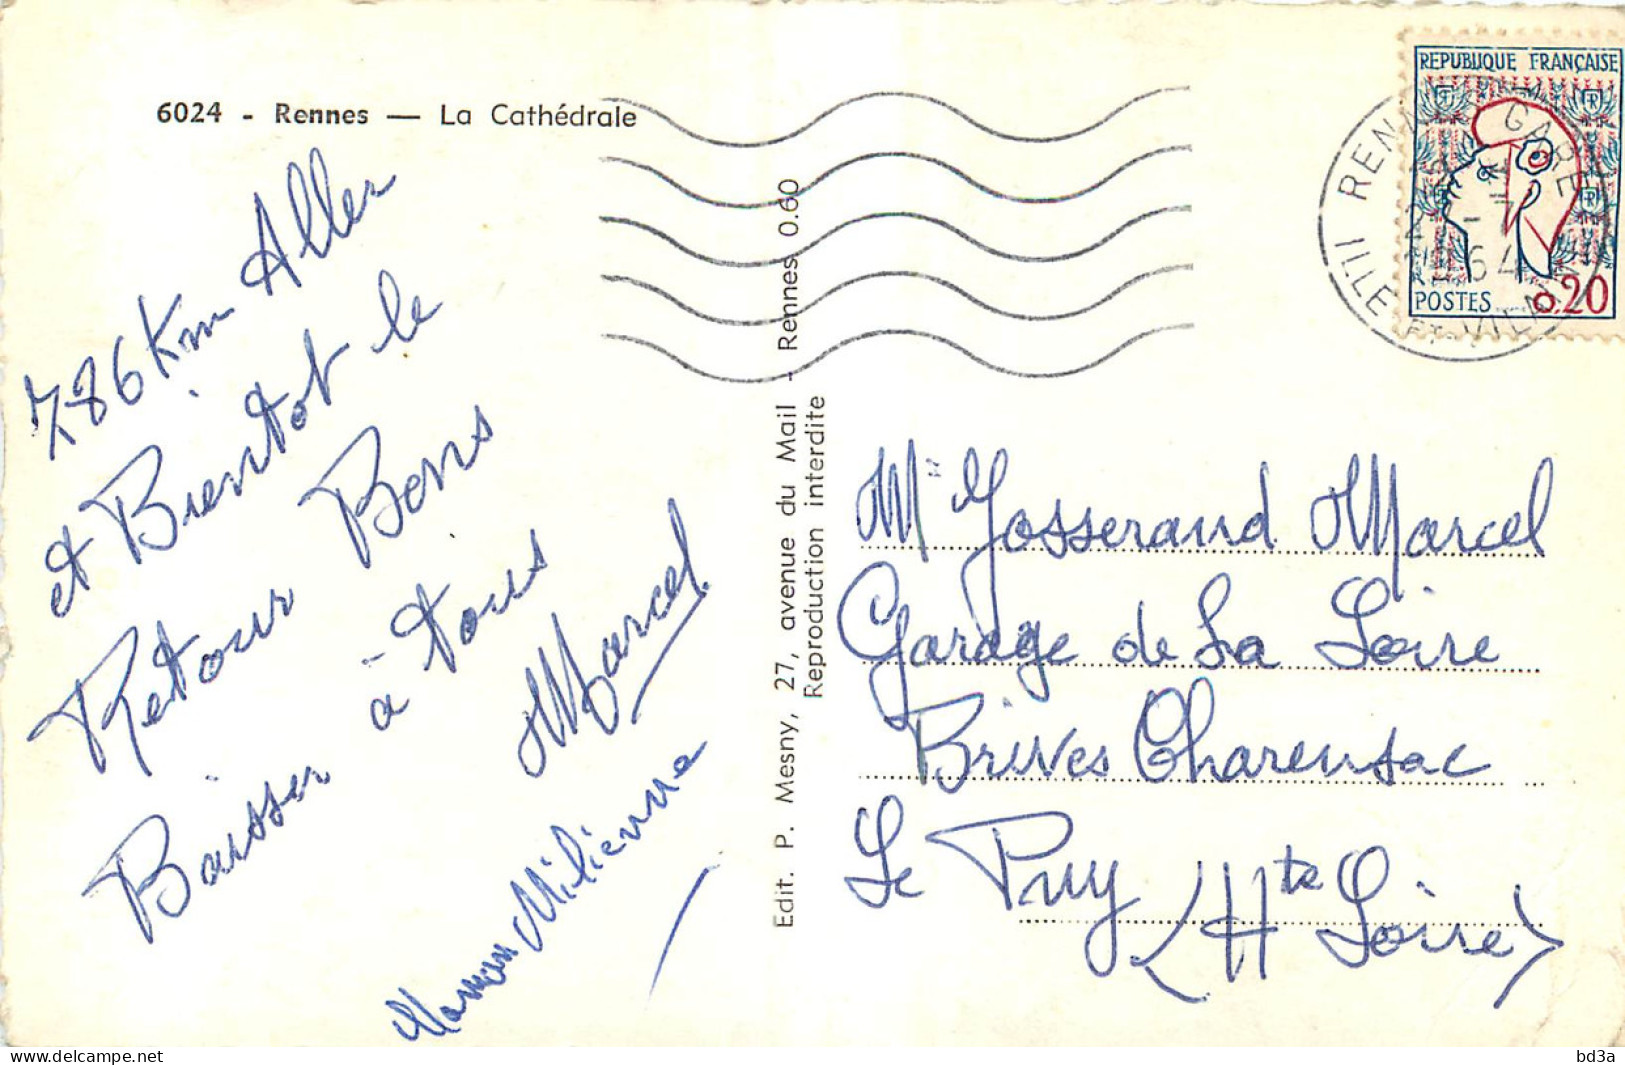 6024 - Rennes — La Cathédrale
786 Km Aller
et Bientot le
Retour Bons
Baisser à tous
Marcel
Maman Miliénne
Edit. P. Mesny, 27, avenue du Mail - Rennes 0.60
Reproduction interdite
REPUBLIQUE FRANÇAISE
POSTES 0.20
RENNES GARE
-7
1964
ILLE ET VILAINE
Mr Josserand Marcel
Garage de La Loire
Brives Charensac
Le Puy
(Hte Loire)
delcampe.net
bd3a